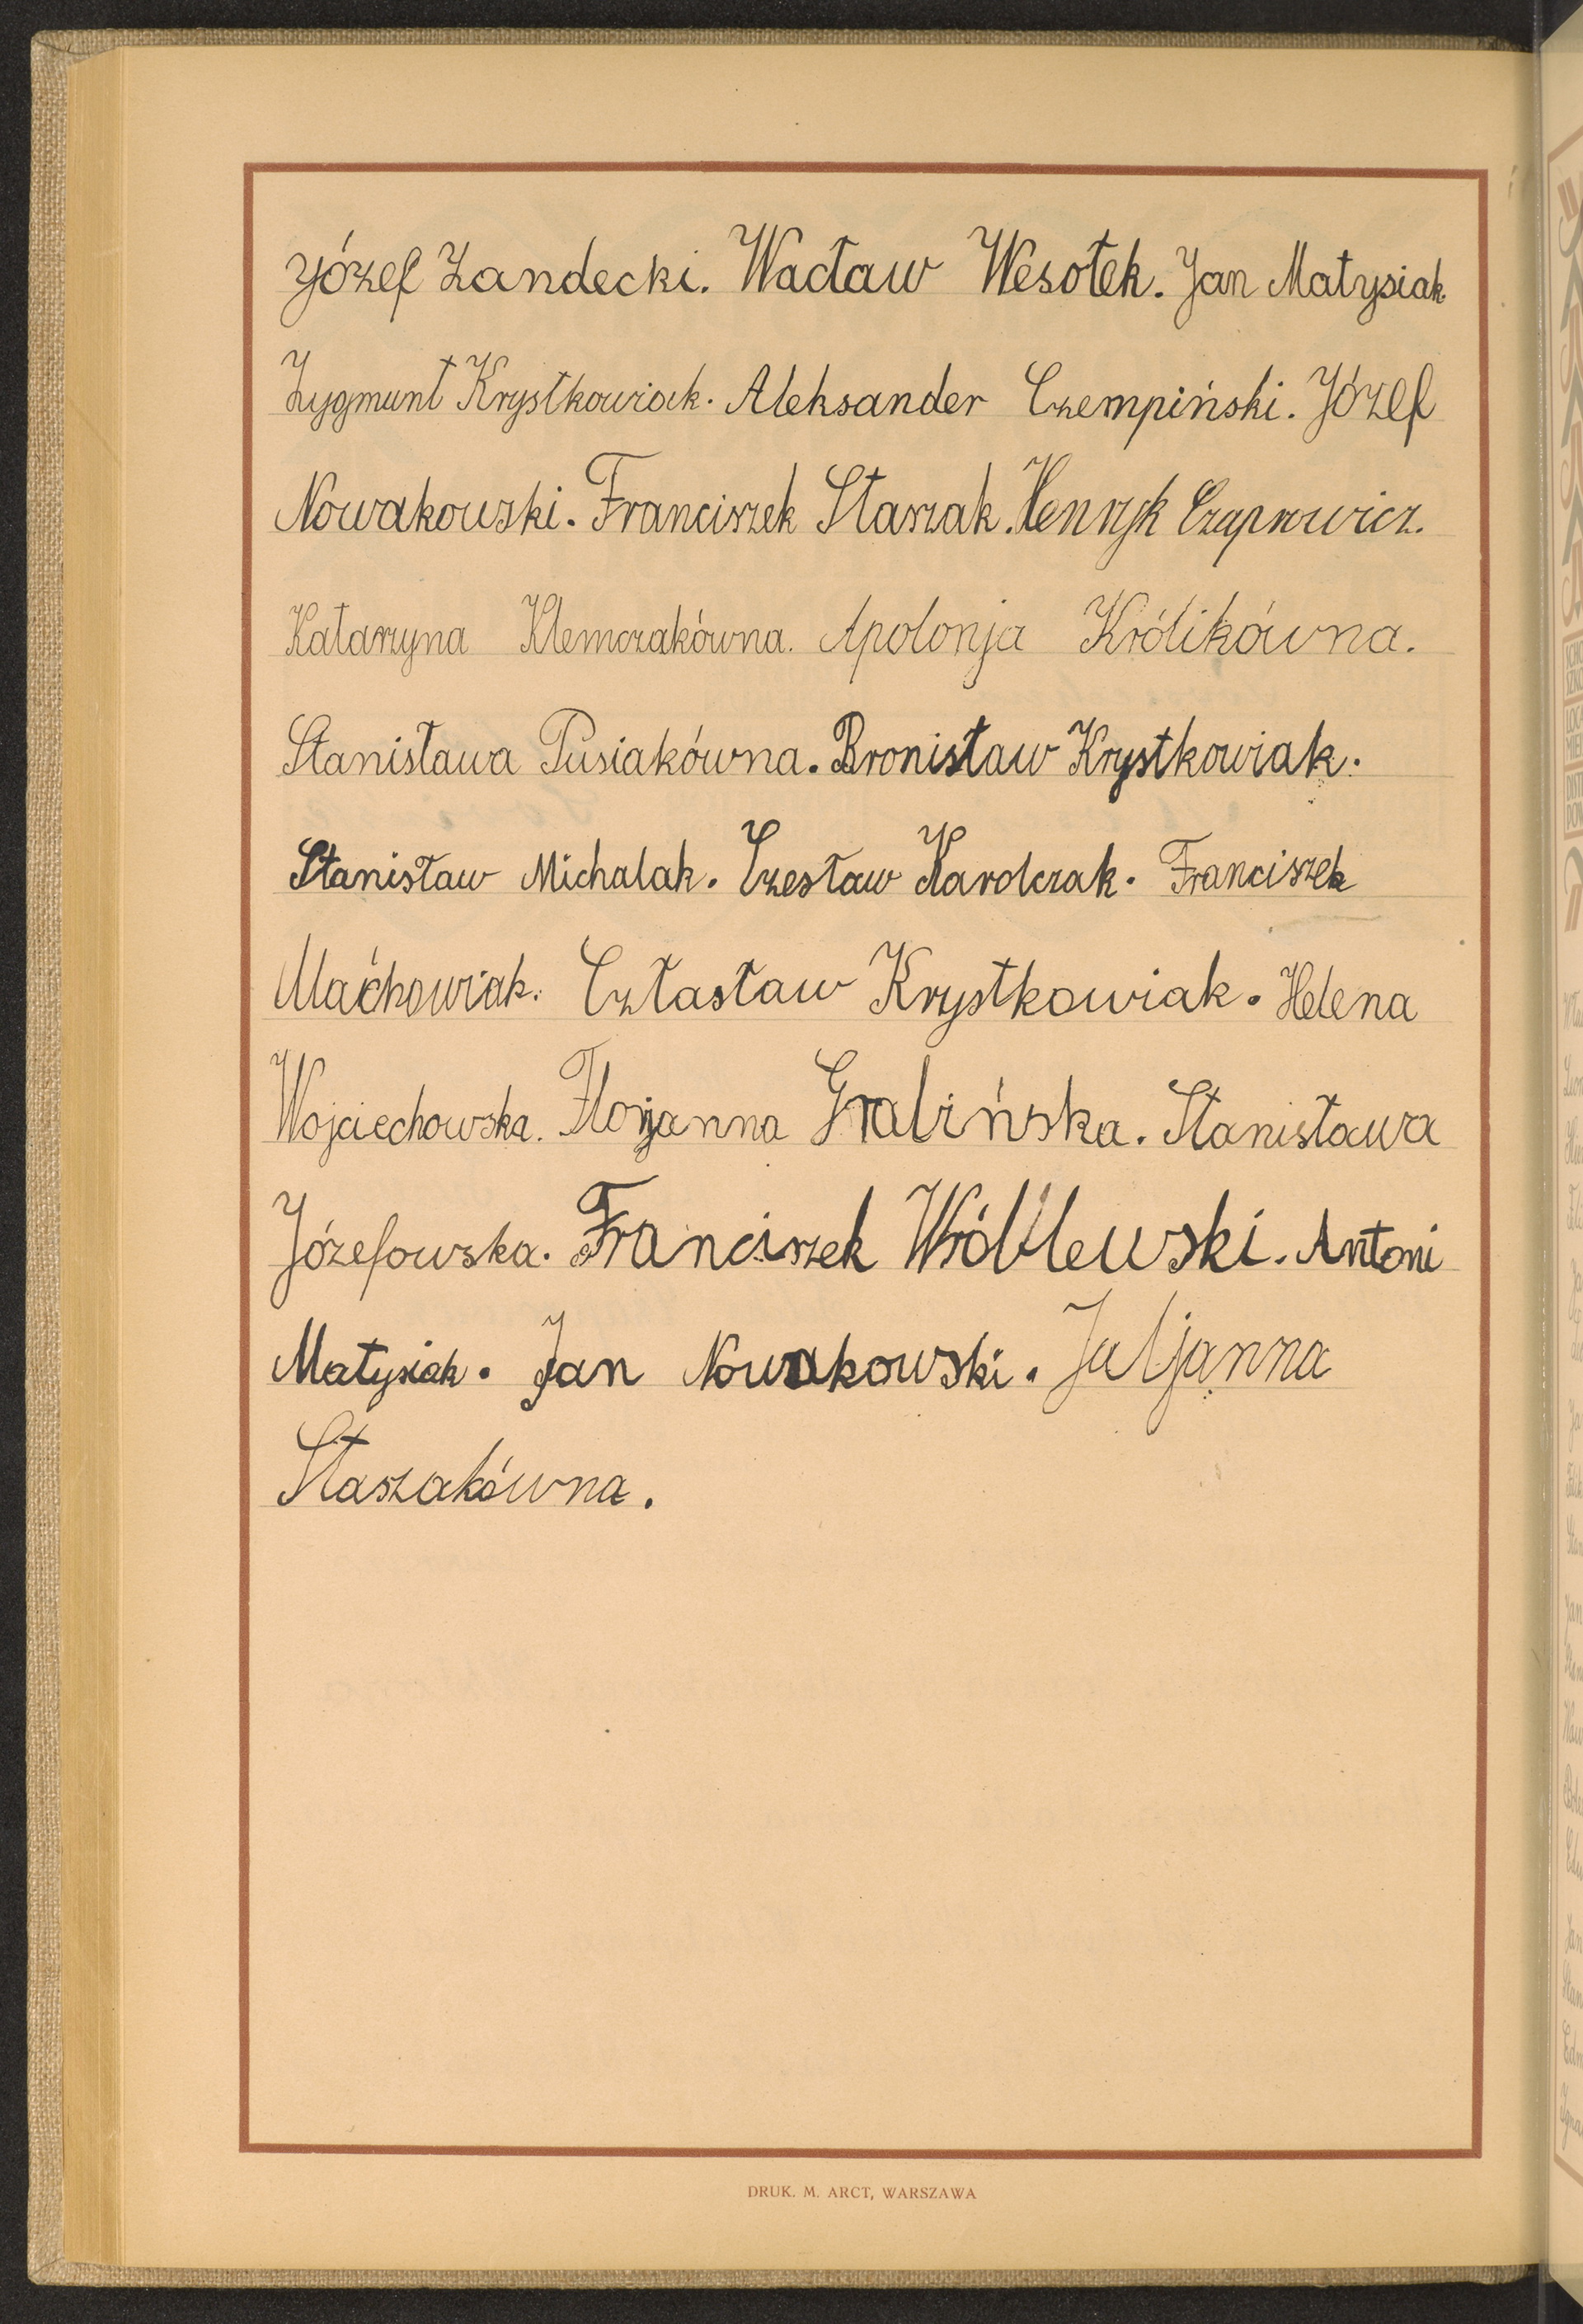 Józef Zandecki. Wacław Wesołek. Jan Matysiak
Zygmunt Krystkowiak. Aleksander Czempiński. Józef
Nowakowski. Franciszek Staszak. Henryk Czaprowicz.
Katarzyna Klemczakówna. Apolonja Królikówna.
Stanisława Pusiakówna. Bronisław Krystkowiak.
Stanisław Michalak. Czesław Karolczak. Franciszek
Maćkowiak. Cztasław Krystkowiak. Helena
Wojciechowska. Florjanna Gralińska. Stanisława
Józefowska. Franciszek Wróblewski. Antoni
Matysiak. Jan Nowakowski. Juljanna
Staszakówna.
DRUK. M. ARCT, WARSZAWA